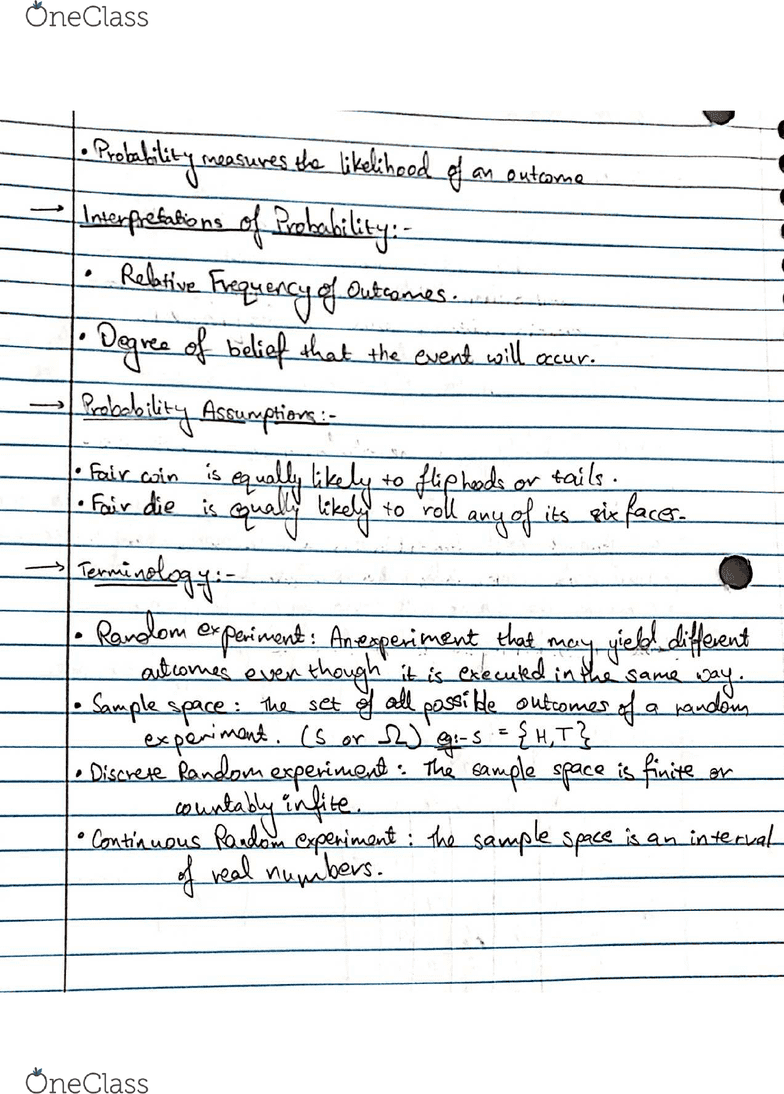 OneClass
• Probability measures the likelihood of an outcome
→ Interpretations of Probability:-
• Relative Frequency of Outcomes.
• Degree of belief that the event will occur.
→ Probability Assumptions:-
• Fair coin is equally likely to flip heads or tails.
• Fair die is equally likely to roll any of its six faces.
→ Terminology:-
• Random experiment: An experiment that may yield different
outcomes even though it is executed in the same way.
• Sample space: the set of all possible outcomes of a random
experiment. (S or Ω) eg:- S = {H,T}
• Discrete Random experiment: The sample space is finite or
countably infite.
• Continuous Random experiment: the sample space is an interval
of real numbers.
OneClass